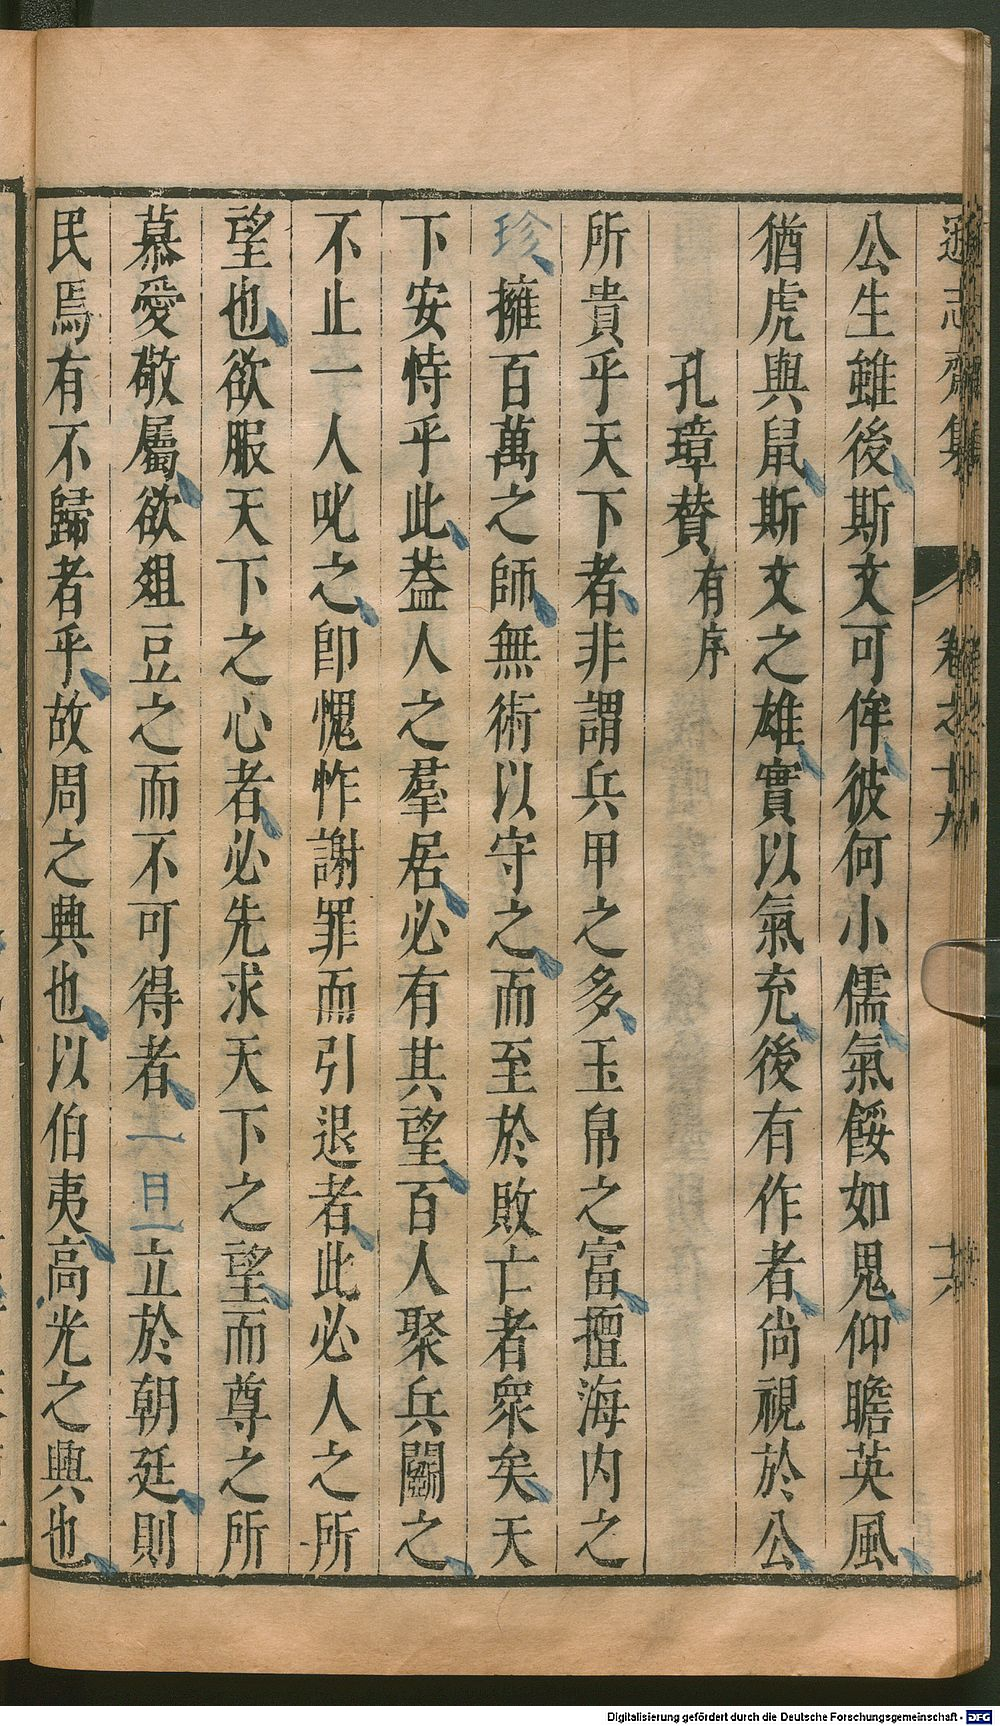 遜志齋集 卷之十九
公生雖後斯文可侔彼何小儒氣餒如鬼仰瞻英風
猶虎與鼠斯文之雄實以氣充後有作者尚視於公
孔璋贊有序
所貴乎天下者非謂兵甲之多玉帛之富擅海内之
珍擁百萬之師無術以守之而至於敗亡者衆矣天
下安恃乎此葢人之羣居必有其望百人聚兵鬭之
不止一人叱之卽愧怍謝罪而引退者此必人之所
望也欲服天下之心者必先求天下之望而尊之所
慕愛敬屬欲俎豆之而不可得者一旦立於朝廷則
民焉有不歸者乎故周之興也以伯夷高光之興也
Digitalisierung gefördert durch die Deutsche Forschungsgemeinschaft - DFG